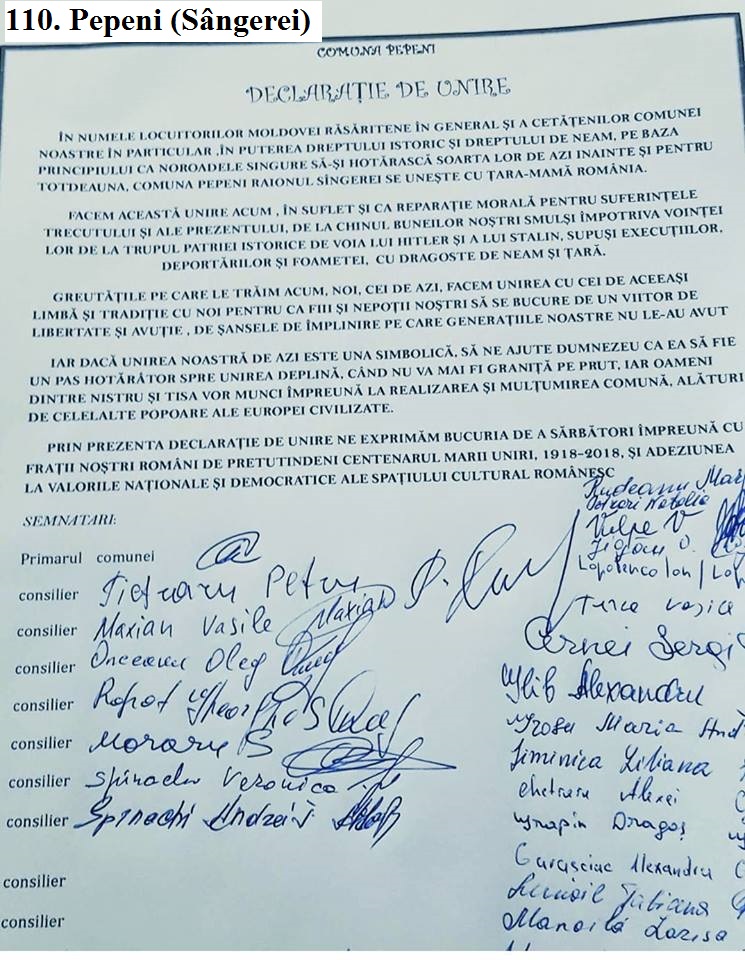 110. Pepeni (Sângerei)
COMUNA PEPENI
DECLARAȚIE DE UNIRE
ÎN NUMELE LOCUITORILOR MOLDOVEI RĂSĂRITENE ÎN GENERAL ȘI A CETĂȚENILOR COMUNEI
NOASTRE ÎN PARTICULAR ,ÎN PUTEREA DREPTULUI ISTORIC ȘI DREPTULUI DE NEAM, PE BAZA
PRINCIPIULUI CA NOROADELE SINGURE SĂ-ȘI HOTĂRASCĂ SOARTA LOR DE AZI INAINTE ȘI PENTRU
TOTDEAUNA, COMUNA PEPENI RAIONUL SÎNGEREI SE UNEȘTE CU ȚARA-MAMĂ ROMÂNIA.
FACEM ACEASTĂ UNIRE ACUM , ÎN SUFLET ȘI CA REPARAȚIE MORALĂ PENTRU SUFERINȚELE
TRECUTULUI ȘI ALE PREZENTULUI, DE LA CHINUL BUNEILOR NOȘTRI SMULȘI ÎMPOTRIVA VOINȚEI
LOR DE LA TRUPUL PATRIEI ISTORICE DE VOIA LUI HITLER ȘI A LUI STALIN, SUPUȘI EXECUȚIILOR,
DEPORTĂRILOR ȘI FOAMETEI, CU DRAGOSTE DE NEAM ȘI ȚARĂ.
GREUTĂȚILE PE CARE LE TRĂIM ACUM, NOI, CEI DE AZI, FACEM UNIREA CU CEI DE ACEEAȘI
LIMBĂ ȘI TRADIȚIE CU NOI PENTRU CA FIII ȘI NEPOȚII NOȘTRI SĂ SE BUCURE DE UN VIITOR DE
LIBERTATE ȘI AVUȚIE , DE ȘANSELE DE ÎMPLINIRE PE CARE GENERAȚIILE NOASTRE NU LE-AU AVUT
IAR DACĂ UNIREA NOASTRĂ DE AZI ESTE UNA SIMBOLICĂ, SĂ NE AJUTE DUMNEZEU CA EA SĂ FIE
UN PAS HOTĂRÂTOR SPRE UNIREA DEPLINĂ, CÂND NU VA MAI FI GRANIȚĂ PE PRUT, IAR OAMENI
DINTRE NISTRU ȘI TISA VOR MUNCI ÎMPREUNĂ LA REALIZAREA ȘI MULȚUMIREA COMUNĂ, ALĂTURI
DE CELELALTE POPOARE ALE EUROPEI CIVILIZATE.
PRIN PREZENTA DECLARAȚIE DE UNIRE NE EXPRIMĂM BUCURIA DE A SĂRBĂTORI ÎMPREUNĂ CU
FRAȚII NOȘTRI ROMÂNI DE PRETUTINDENI CENTENARUL MARII UNIRI, 1918-2018, ȘI ADEZIUNEA
LA VALORILE NAȚIONALE ȘI DEMOCRATICE ALE SPAȚIULUI CULTURAL ROMÂNESC
SEMNATARI:
Primarul comunei
consilier Pietraru Petru
consilier Maxian Vasile Maxian
consilier Onceanu Oleg
consilier
consilier Moraru S
consilier Spinachi Veronica
consilier Spinachi Andrei
consilier
consilier
Rudeanu Mar
Natalia
Vulpe V
Lopotenco Ion
Turco Vasile
Cernei Sergi
Glib Alexandru
Grosu Maria
Jiminica Liliana
Chetraru Alexei
Dragoș
Alexandru
Tatiana
Manoilă Larisa